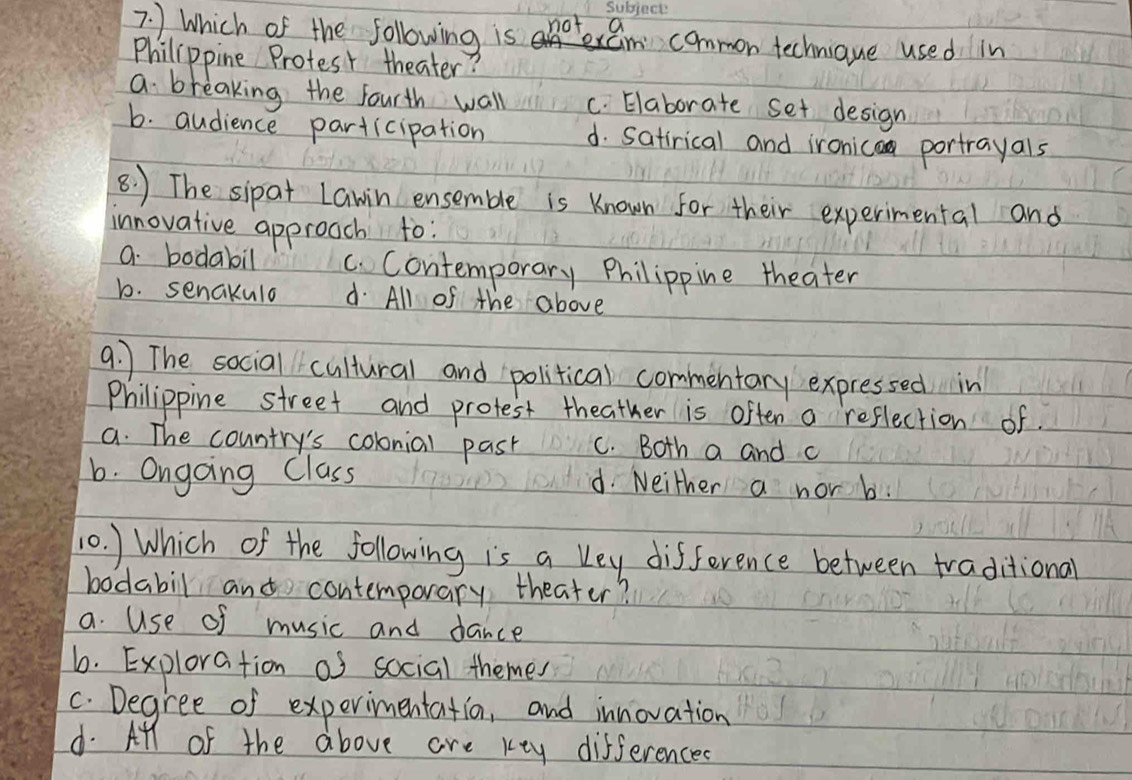 Subject:
7.) Which of the following is not a common technique used in
Philippine Protest theater?
a. breaking the fourth wall c. Elaborate set design
b. audience participation d. Satirical and ironic portrayals
8.) The sipat Lawin ensemble is known for their experimental and
innovative approach to:
a. bodabil c. Contemporary Philippine theater
b. senakulo d. All of the above
9.) The social cultural and political commentary expressed in
Philippine street and protest theather is often a reflection of.
a. The country's colonial past c. Both a and c
b. Ongoing Class d. Neither a nor b.
10.) Which of the following is a key difference between traditional
bodabil and contemporary theater?
a. Use of music and dance
b. Exploration of social themes
c. Degree of experimentatio, and innovation
d. All of the above are key differences